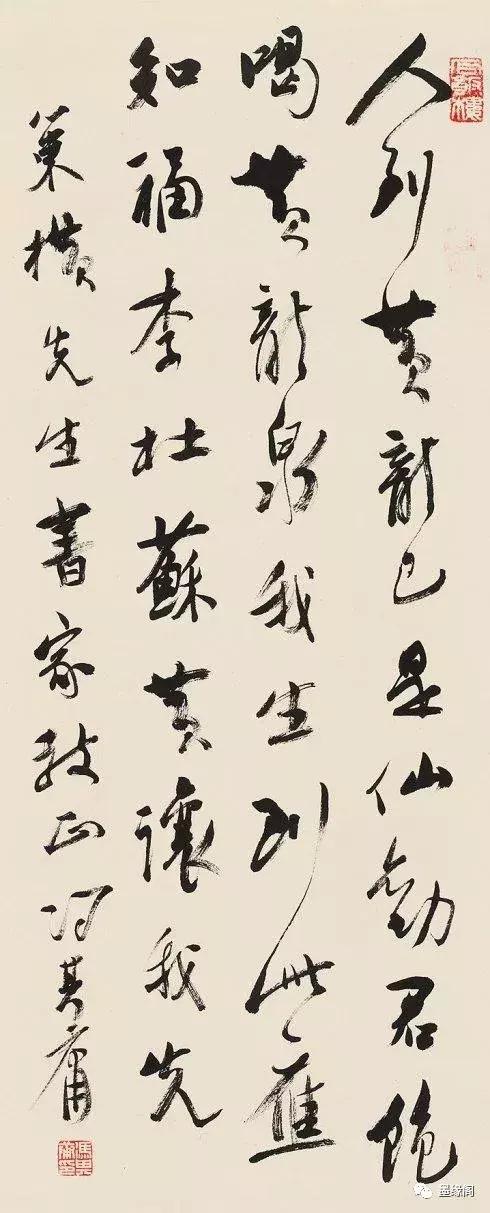 人到黄龍已是仙勸君飽
喝黄龍泉我生到此應
知福李杜蘇黄讓我先
策横先生書家教正馮其庸
墨缘阁